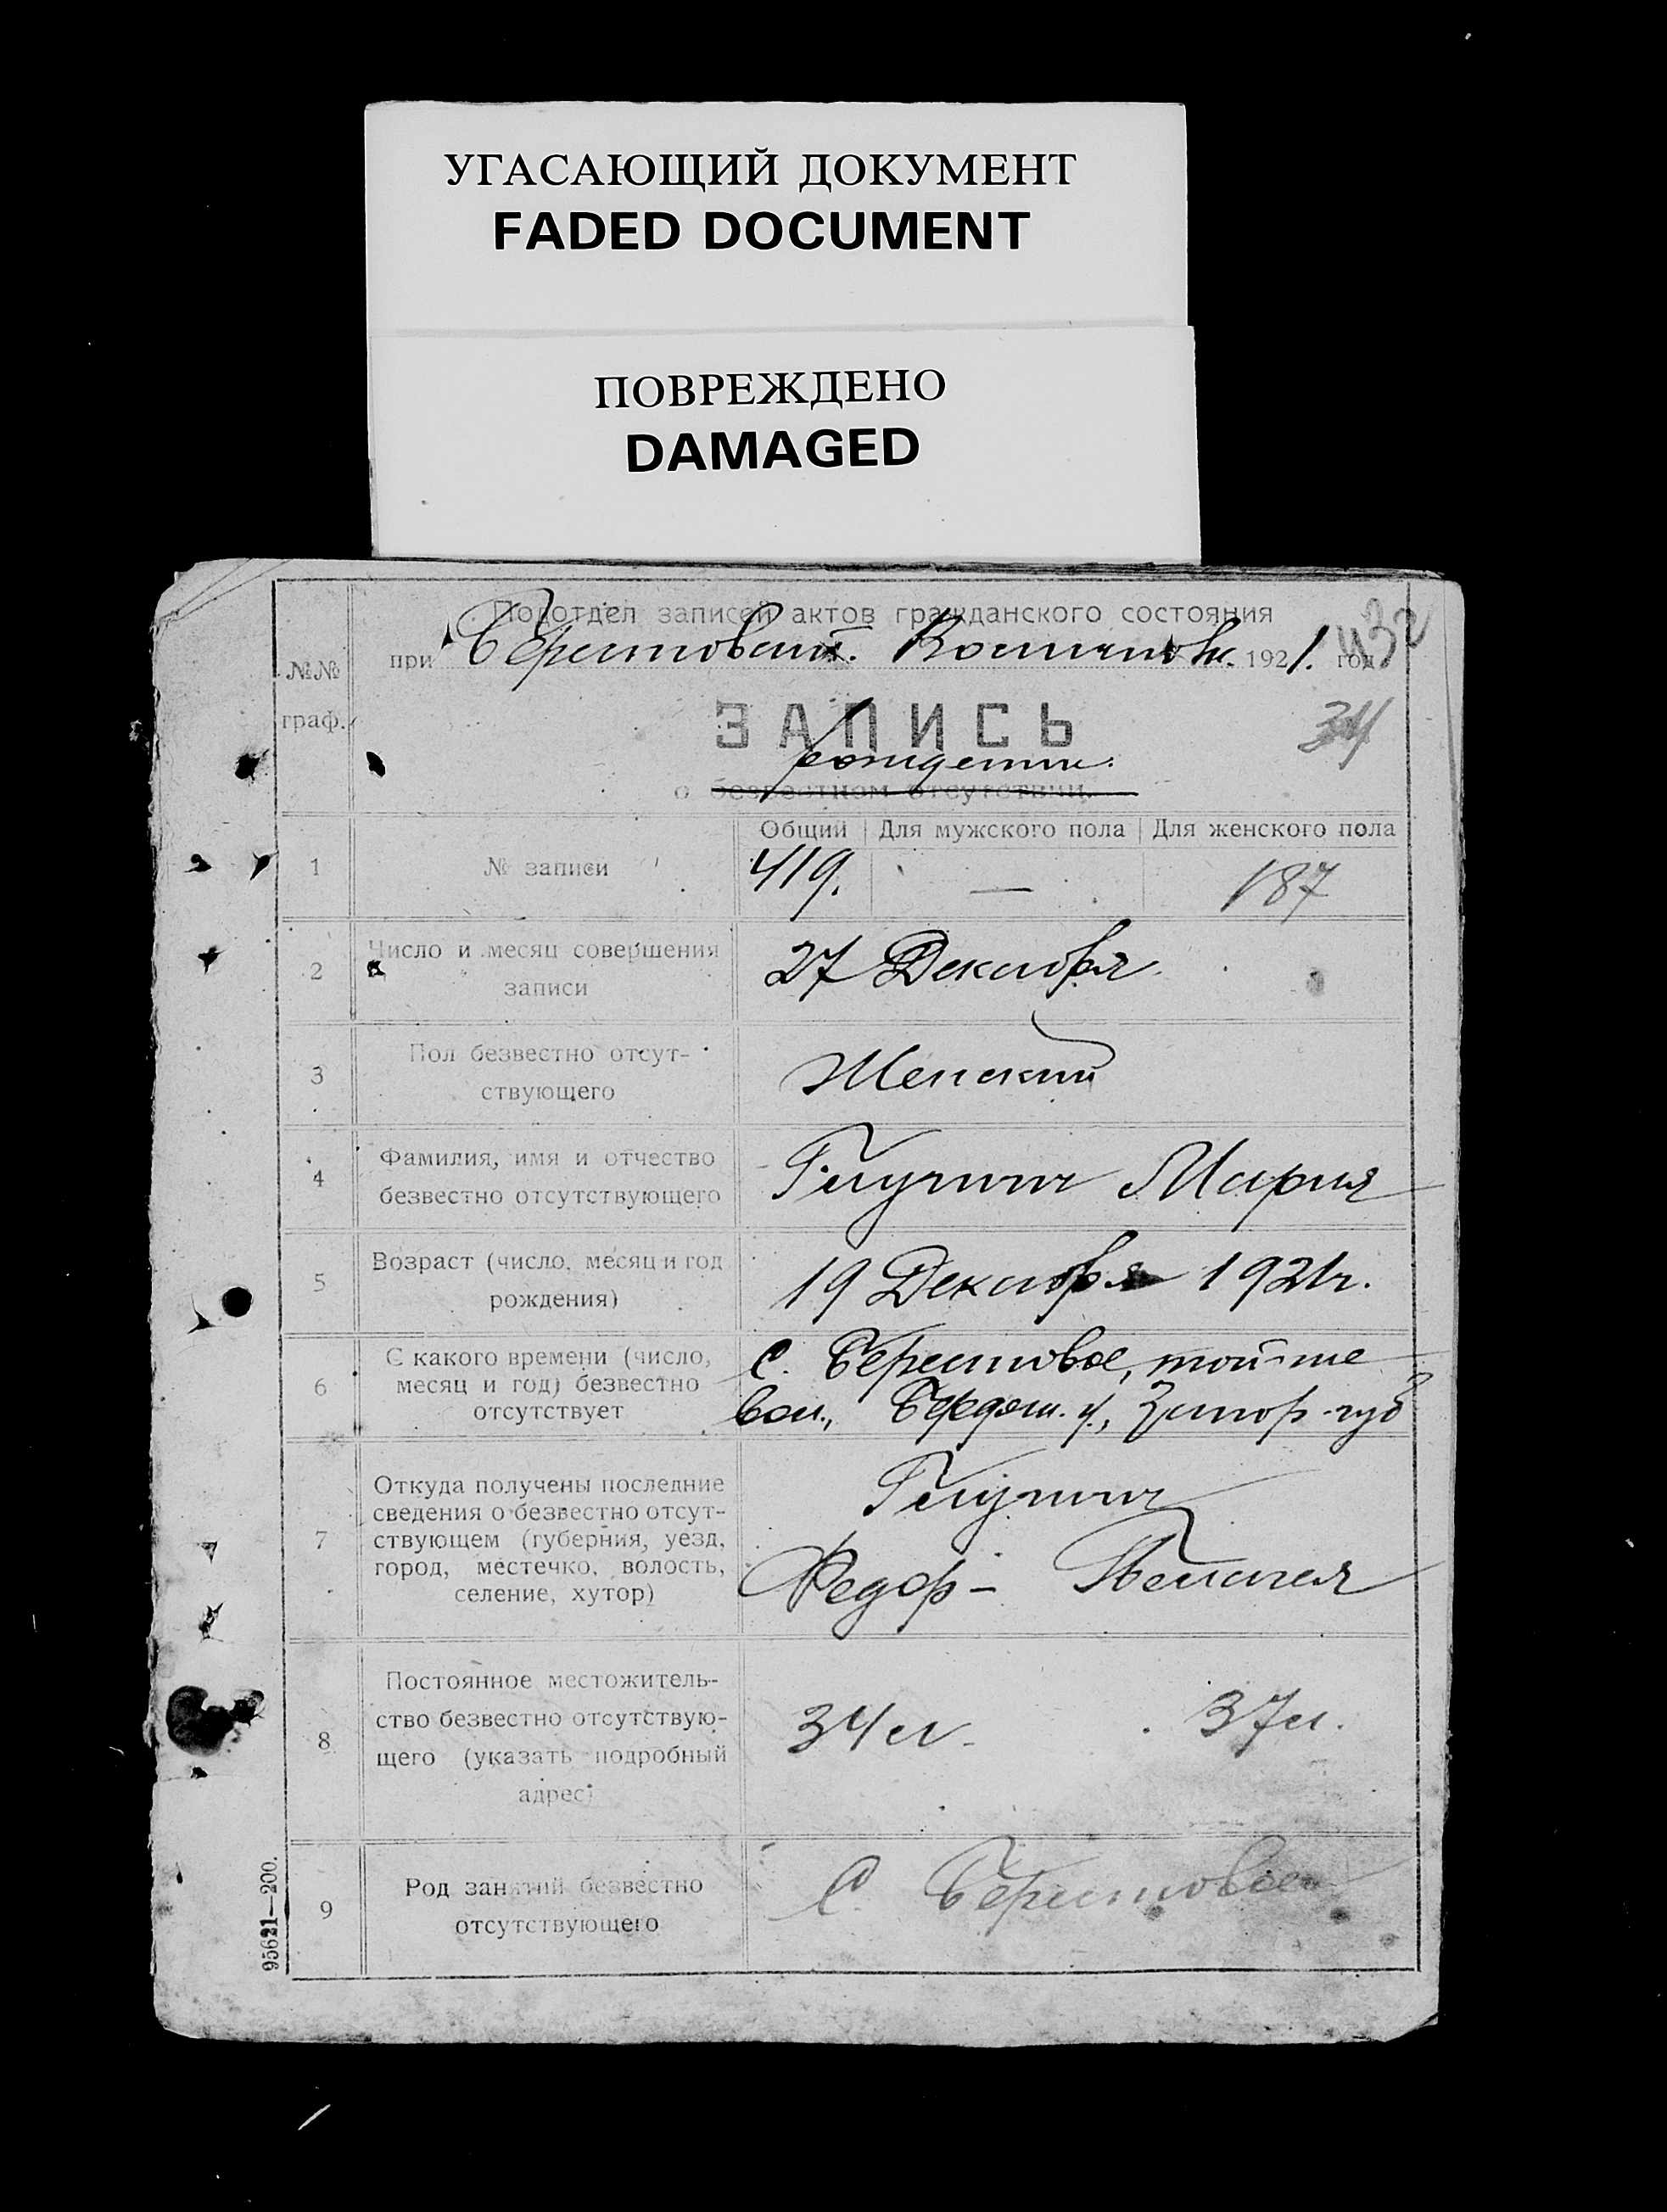 УГАСАЮЩИЙ ДОКУМЕНТ
FADED DOCUMENT
ПОВРЕЖДЕНО
DAMAGED
Подотдел записей актов гражданского состояния
при Берестовск. 1921. год
432
№№
граф.
ЗАПИСЬ
34
рождении.
о безвестном отсутствии
Общий Для мужского пола Для женского пола
1 № записи 419. — 187
2 Число и месяц совершения
записи
27 Декабря
3 Пол безвестно отсут-
ствующего
Женский
4 Фамилия, имя и отчество
безвестно отсутствующего
Мария
5 Возраст (число, месяц и год
рождения)
19 Декабря 1921г.
6 С какого времени (число,
месяц и год) безвестно
отсутствует
с. Берестовое, той-же
вол., Бердян. у., Запор. губ
7 Откуда получены последние
сведения о безвестно отсут-
ствующем (губерния, уезд,
город, местечко, волость,
селение, хутор)
Федор - Пелагея
8 Постоянное местожитель-
ство безвестно отсутствую-
щего (указать подробный
адрес)
34 л. 37 л.
9 Род занятий безвестно
отсутствующего
С. Берестовое
95621—200.